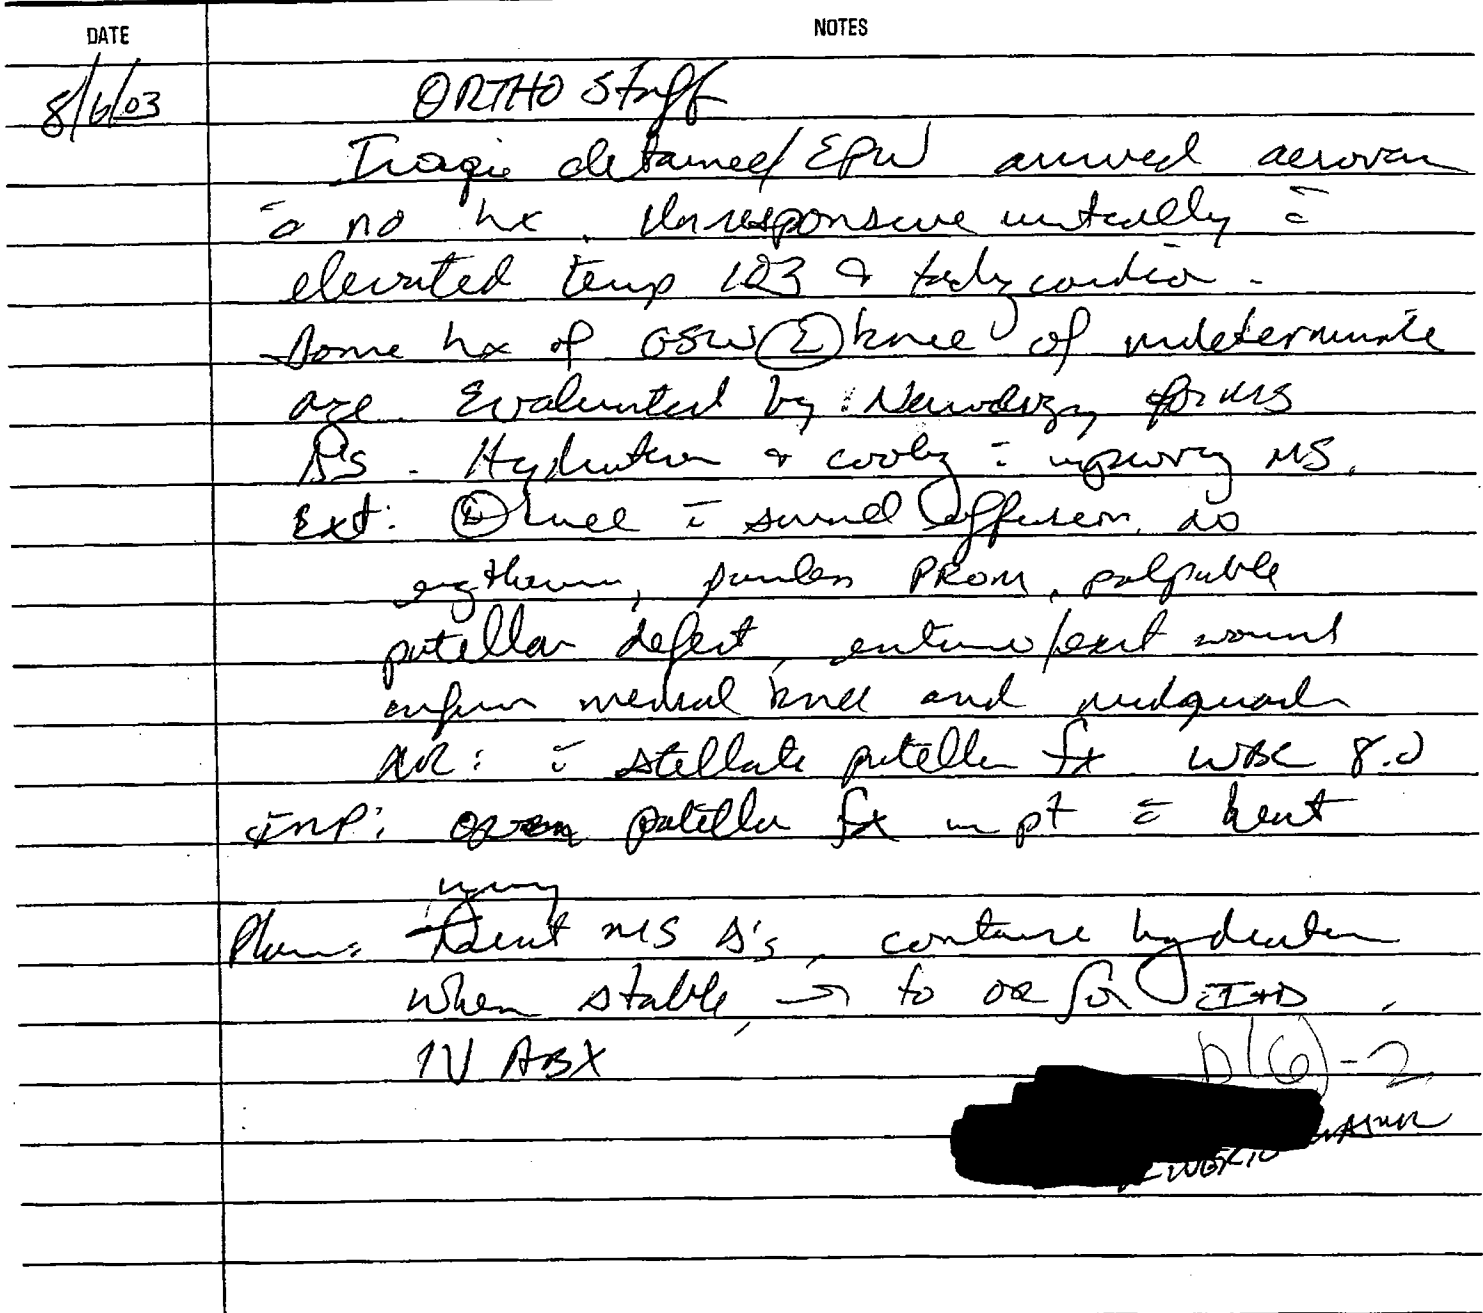 DATE NOTES
8/6/03 ORTHO Staff
Iraqi detainee/EPW arrived aerovan
c̄ no hx. Unresponsive initially c̄
elevated temp 103 & tachycardia.
Some hx of GSW Ⓛ knee of indeterminate
age. Evaluated by Neurology for MS
Δ's. Hydration & cooling c̄ improving MS.
Ext: Ⓛ knee c̄ small effusion, no
erythema, painless PROM, palpable
patellar defect, entrance/exit wound
medial knee and midquad
XR: c̄ stellate patella fx WBC 8.0
IMP: open patella fx in pt c̄ heat
injury
Plan: Treat MS Δ's, continue hydration
When stable, → to OR for I+D,
IV ABX
b(6)-2